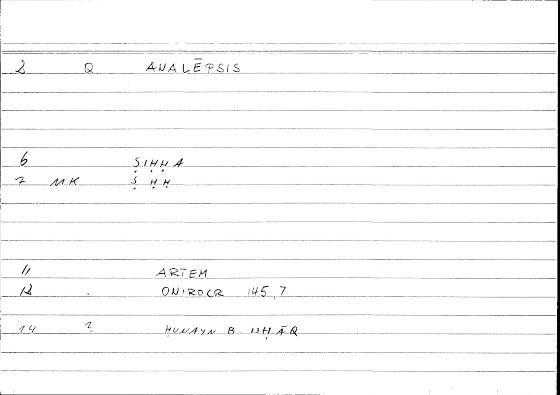 2 Q ANALĒPSIS
6 ṢIḤḤA
7 MK Ṣ ḤḤ
11 ARTEM
12 . ONIROCR 145,7
14 ? ḤUNAYN B. ISḤĀQ